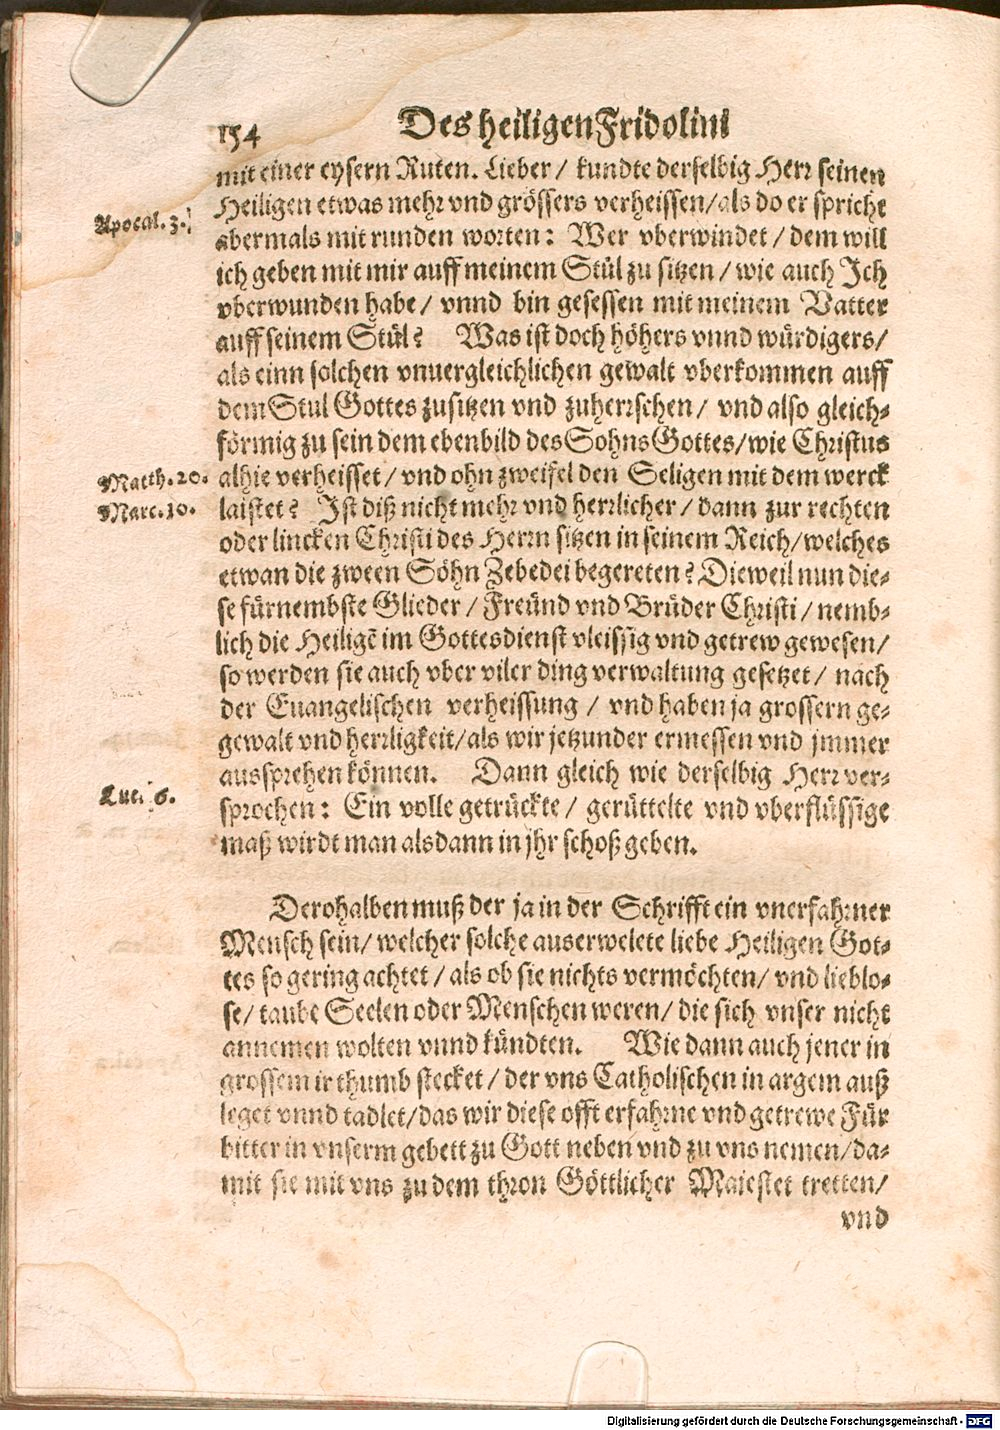 154 Des heiligen Fridolini
mit einer eysern Ruten. Lieber / kundte derselbig Herr seinen
Heiligen etwas mehr vnd grössers verheissen/als do er spricht
Apocal. 3.
abermals mit runden worten: Wer vberwindet / dem will
ich geben mit mir auff meinem Stůl zu sitzen / wie auch Ich
vberwunden habe / vnnd bin gesessen mit meinem Vatter
auff seinem Stůl? Was ist doch höhers vnnd würdigers/
als einn solchen vnuergleichlichen gewalt vberkommen auff
dem Stul Gottes zusitzen vnd zuherrschen / vnd also gleich-
förmig zu sein dem ebenbild des Sohns Gottes/wie Christus
Matth. 20.
alhie verheisset / vnd ohn zweifel den Seligen mit dem werck
Marc. 10.
laistet? Ist diß nicht mehr vnd herrlicher / dann zur rechten
oder lincken Christi des Herrn sitzen in seinem Reich/welches
etwan die zween Söhn Zebedei begereten? Dieweil nun die-
se fürnembste Glieder / Freünd vnd Brüder Christi / nemb-
lich die Heiligē im Gottesdienst vleissig vnd getrew gewesen/
so werden sie auch vber viler ding verwaltung gesetzet / nach
der Euangelischen verheissung / vnd haben ja grossern ge-
gewalt vnd herrligkeit/als wir jetzunder ermessen vnd jmmer
aussprehen können. Dann gleich wie derselbig Herr ver-
Luc. 6.
sprochen: Ein volle getrückte / gerüttelte vnd vberflüssige
maß wirdt man alsdann in jhr schoß geben.
Derohalben muß der ja in der Schrifft ein vnerfahrner
Mensch sein/ welcher solche auserwelete liebe Heiligen Got-
tes so gering achtet / als ob sie nichts vermöchten/ vnd lieblo-
se/ taube Seelen oder Menschen weren/ die sich vnser nicht
annemen wolten vnnd kündten. Wie dann auch jener in
grossem irthumb stecket / der vns Catholischen in argem auß
leget vnnd tadlet/das wir diese offt erfahrne vnd getrewe Für
bitter in vnserm gebett zu Gott neben vnd zu vns nemen/da-
mit sie mit vns zu dem thron Göttlicher Maiestet tretten/
vnd
Digitalisierung gefördert durch die Deutsche Forschungsgemeinschaft - DFG